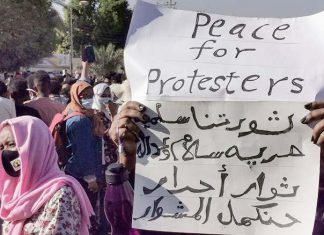 Peace
for
Protesters
ثورتنا
حرية سلام
ثوار أحرار
حنكمل المشوار